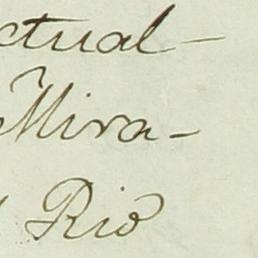 ctual-
Mira-
Rio